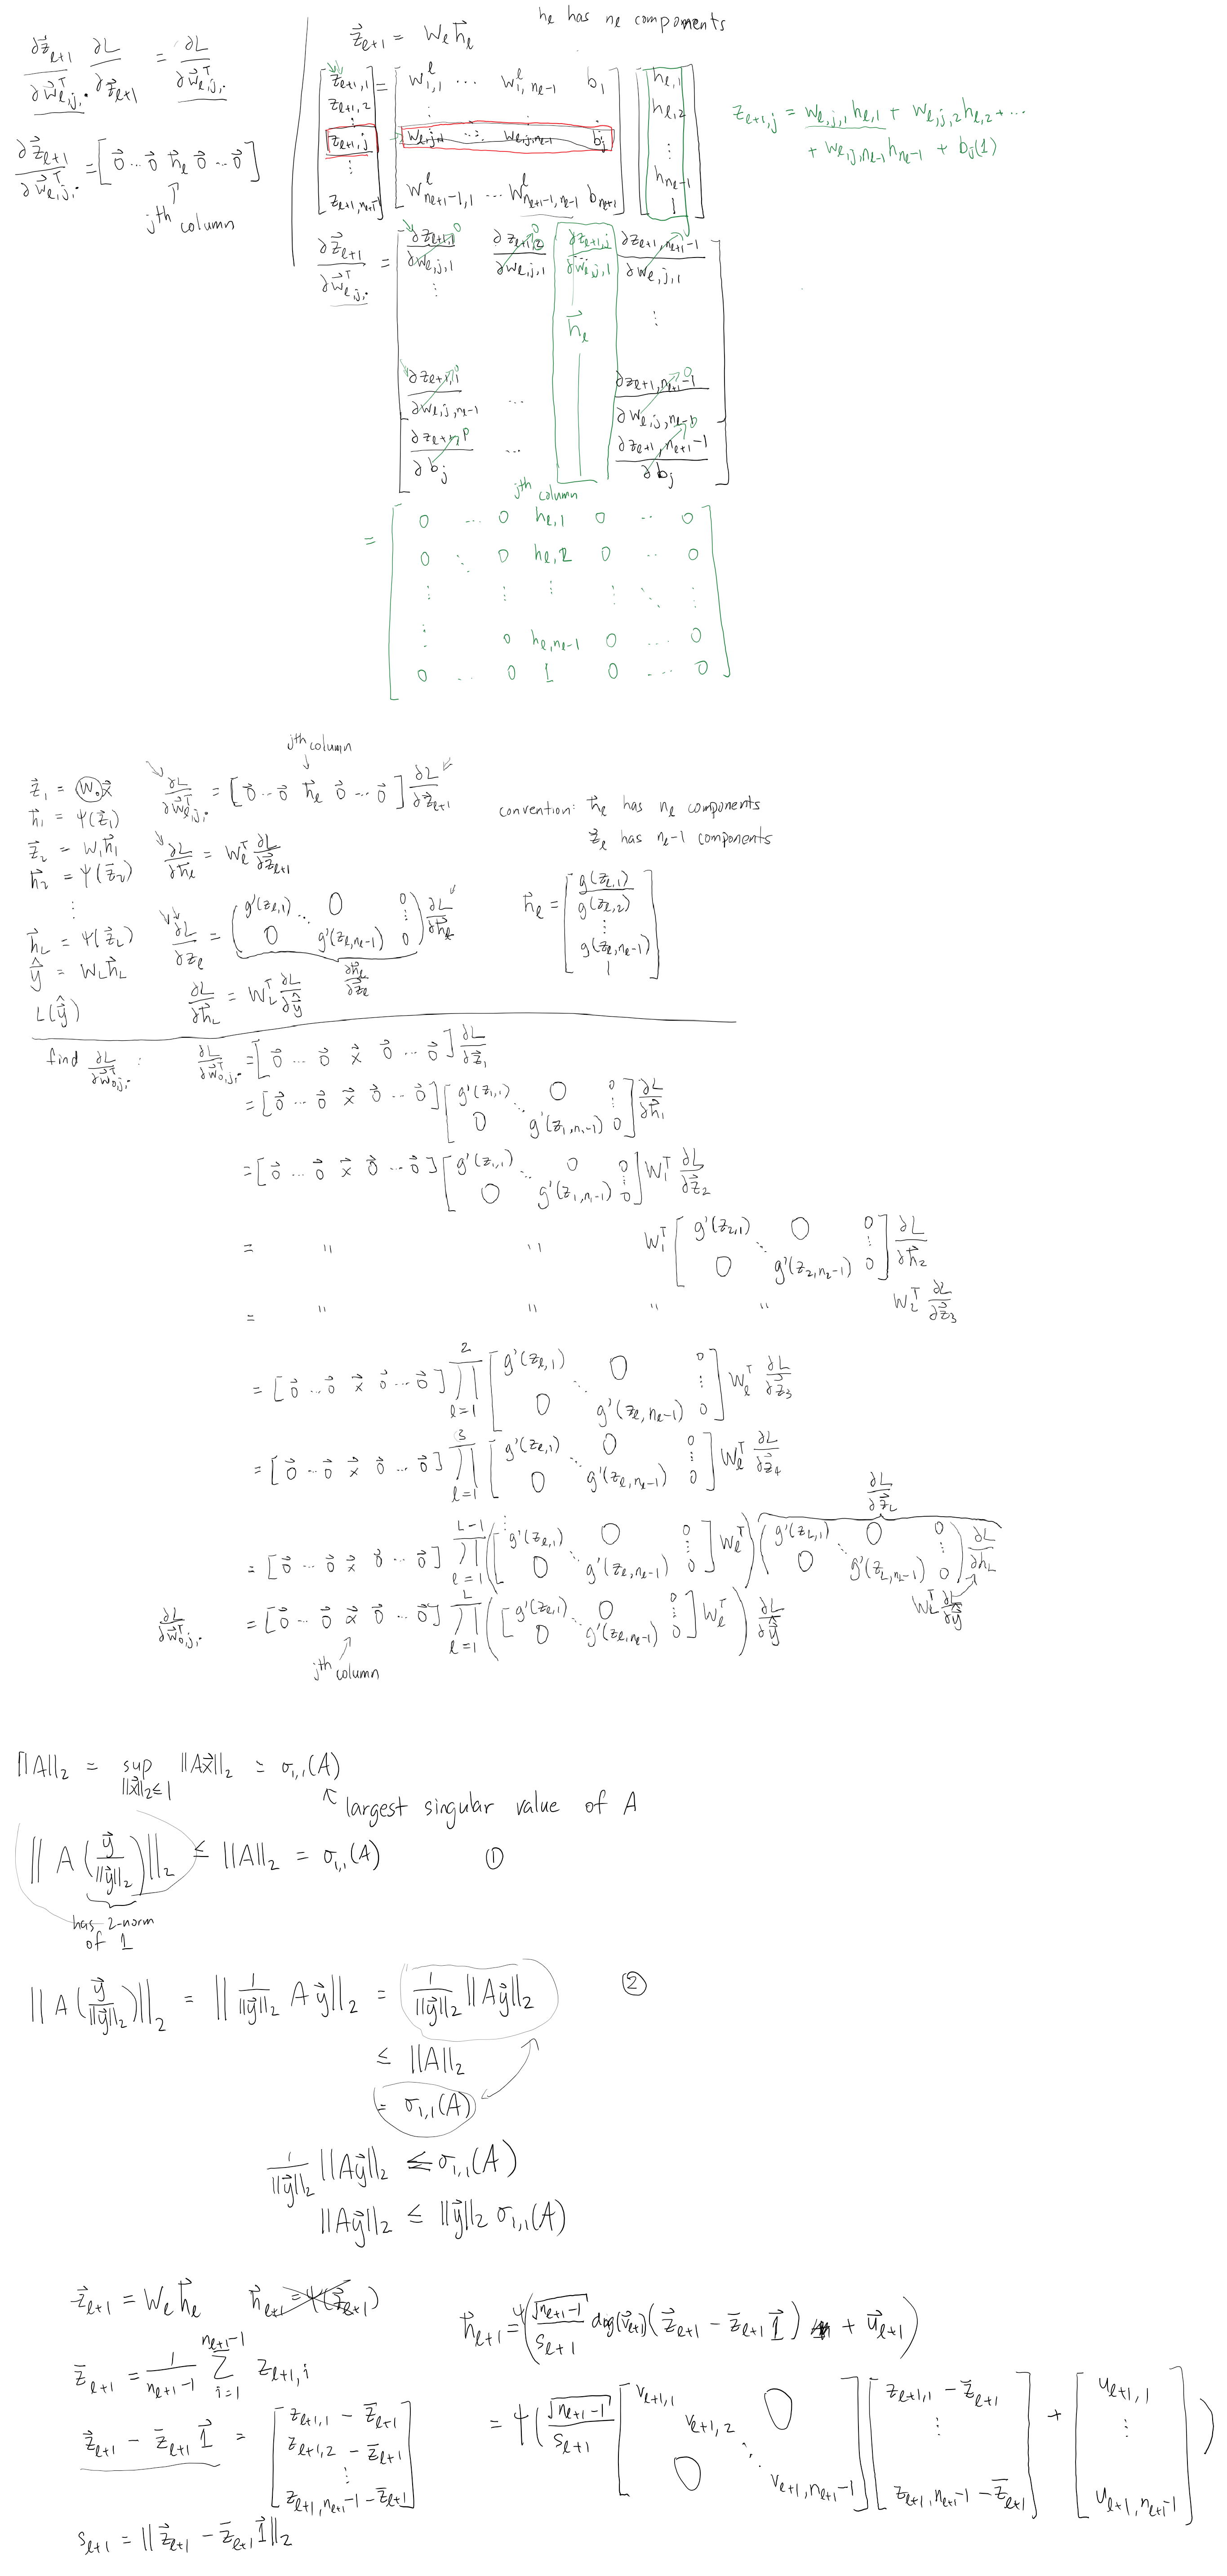 ∂z⃗ₗ₊₁/∂w⃗ᵀₗ,ⱼ,· ∂L/∂z⃗ₗ₊₁ = ∂L/∂w⃗ᵀₗ,ⱼ,·
∂z⃗ₗ₊₁/∂w⃗ᵀₗ,ⱼ,· = [0⃗ ... 0⃗ h⃗ₗ 0⃗ ... 0⃗]
↑
jth column
hₗ has nₗ components
z⃗ₗ₊₁ = Wₗ h⃗ₗ
[zₗ₊₁,₁ ; zₗ₊₁,₂ ; ⋮ ; zₗ₊₁,ⱼ ; ⋮ ; z_{ℓ+1,n_{ℓ+1}-1}] = [w^ℓ_{1,1} ... w^ℓ_{1,n_ℓ-1} b₁ ; ⋮ ; w_{ℓ,j,1} ... w_{ℓ,j,n_ℓ-1} bⱼ ; w^ℓ_{n_{ℓ+1}-1,1} ... w^ℓ_{n_{ℓ+1}-1,n_ℓ-1} b_{n_{ℓ+1}}] [h_{ℓ,1} ; h_{ℓ,2} ; ⋮ ; h_{n_ℓ-1} ; 1]
z_{ℓ+1,j} = w_{ℓ,j,1} h_{ℓ,1} + w_{ℓ,j,2} h_{ℓ,2} + ...
+ w_{ℓ,j,n_ℓ-1} h_{n_ℓ-1} + bⱼ(1)
∂z⃗_{ℓ+1}/∂w⃗ᵀ_{ℓ,j,·} = [∂z_{ℓ+1,1}/∂w_{ℓ,j,1} 0 ∂z_{ℓ+1,2}/∂w_{ℓ,j,1} 0 ∂z_{ℓ+1,j}/∂w_{ℓ,j,1} ∂z_{ℓ+1,n_{ℓ+1}-1}/∂w_{ℓ,j,1} 0
⋮ h⃗ₗ ⋮
∂z_{ℓ+1,1}/∂w_{ℓ,j,n_ℓ-1} 0 ... ∂z_{ℓ+1,n_{ℓ+1}-1}/∂w_{ℓ,j,n_ℓ-1} 0
∂z_{ℓ+1,1}/∂bⱼ 0 ... ∂z_{ℓ+1,n_{ℓ+1}-1}/∂bⱼ 0]
jth column
= [0 ... 0 h_{ℓ,1} 0 ... 0
0 ⋱ 0 h_{ℓ,2} 0 ... 0
⋮ ⋮ ⋮ ⋮ ⋱ ⋮
⋮ 0 h_{ℓ,n_ℓ-1} 0 ... 0
0 ... 0 1 0 ... 0]
jth column
↓
z⃗₁ = W₀x⃗
h⃗₁ = ψ(z⃗₁)
z⃗₂ = W₁h⃗₁
h⃗₂ = ψ(z⃗₂)
⋮
h⃗_L = ψ(z⃗_L)
ŷ⃗ = W_L h⃗_L
L(ŷ⃗)
∂L/∂w⃗ᵀ_{ℓ,j,·} = [0⃗ ... 0⃗ h⃗ₗ 0⃗ ... 0⃗] ∂L/∂z⃗_{ℓ+1}
∂L/∂h⃗ₗ = Wₗᵀ ∂L/∂z⃗_{ℓ+1}
∂L/∂zₗ = (g'(z_{ℓ,1}) 0 0 ; ⋱ ⋮ ; 0 g'(z_{ℓ,n_ℓ-1}) 0) ∂L/∂h⃗ₗ
∂h⃗ₗ/∂z⃗ₗ
∂L/∂h⃗_L = W_Lᵀ ∂L/∂ŷ⃗
convention: h⃗ₗ has nₗ components
z⃗ₗ has nₗ-1 components
h⃗ₗ = [g(z_{ℓ,1}) ; g(z_{ℓ,2}) ; ⋮ ; g(z_{ℓ,n_ℓ-1}) ; 1]
find ∂L/∂w⃗ᵀ_{0,j,·} : ∂L/∂w⃗ᵀ_{0,j,·} = [0⃗ ... 0⃗ x⃗ 0⃗ ... 0⃗] ∂L/∂z⃗₁
= [0⃗ ... 0⃗ x⃗ 0⃗ ... 0⃗] [g'(z_{1,1}) 0 0 ; ⋱ ⋮ ; 0 g'(z_{1,n₁-1}) 0] ∂L/∂h⃗₁
= [0⃗ ... 0⃗ x⃗ 0⃗ ... 0⃗] [g'(z_{1,1}) 0 0 ; ⋱ ⋮ ; 0 g'(z_{1,n₁-1}) 0] W₁ᵀ ∂L/∂z⃗₂
= " " W₁ᵀ [g'(z_{2,1}) 0 0 ; ⋱ ⋮ ; 0 g'(z_{2,n₂-1}) 0] ∂L/∂h⃗₂
= " " " " W₂ᵀ ∂L/∂z⃗₃
= [0⃗ ... 0⃗ x⃗ 0⃗ ... 0⃗] ∏_{ℓ=1}^{2} [g'(z_{ℓ,1}) 0 0 ; ⋱ ⋮ ; 0 g'(z_{ℓ,n_ℓ-1}) 0] Wₗᵀ ∂L/∂z⃗₃
= [0⃗ ... 0⃗ x⃗ 0⃗ ... 0⃗] ∏_{ℓ=1}^{3} [g'(z_{ℓ,1}) 0 0 ; ⋱ ⋮ ; 0 g'(z_{ℓ,n_ℓ-1}) 0] Wₗᵀ ∂L/∂z⃗₄
∂L/∂z⃗_L
= [0⃗ ... 0⃗ x⃗ 0⃗ ... 0⃗] ∏_{ℓ=1}^{L-1} ([g'(z_{ℓ,1}) 0 0 ; ⋱ ⋮ ; 0 g'(z_{ℓ,n_ℓ-1}) 0] Wₗᵀ) (g'(z_{L,1}) 0 0 ; ⋱ ⋮ ; 0 g'(z_{L,n_L-1}) 0) ∂L/∂h_L
W_Lᵀ ∂L/∂ŷ⃗
∂L/∂w⃗ᵀ_{0,j,·} = [0⃗ ... 0⃗ x⃗ 0⃗ ... 0⃗] ∏_{ℓ=1}^{L} ([g'(z_{ℓ,1}) 0 0 ; ⋱ ⋮ ; 0 g'(z_{ℓ,n_ℓ-1}) 0] Wₗᵀ) ∂L/∂ŷ⃗
jth column
||A||₂ = sup_{||x⃗||₂≤1} ||Ax⃗||₂ = σ₁,₁(A)
↖ largest singular value of A
||A(y⃗/||y⃗||₂)||₂ ≤ ||A||₂ = σ₁,₁(A) ①
has 2-norm
of 1
||A(y⃗/||y⃗||₂)||₂ = ||1/||y⃗||₂ Ay⃗||₂ = 1/||y⃗||₂ ||Ay⃗||₂ ②
≤ ||A||₂
= σ₁,₁(A)
1/||y⃗||₂ ||Ay⃗||₂ ≤ σ₁,₁(A)
||Ay⃗||₂ ≤ ||y⃗||₂ σ₁,₁(A)
z⃗_{ℓ+1} = Wₗ h⃗ₗ h⃗_{ℓ+1} = ψ(z⃗_{ℓ+1})
z̄_{ℓ+1} = 1/(n_{ℓ+1}-1) ∑_{i=1}^{n_{ℓ+1}-1} z_{ℓ+1,i}
z⃗_{ℓ+1} - z̄_{ℓ+1} 1⃗ = [z_{ℓ+1,1} - z̄_{ℓ+1} ; z_{ℓ+1,2} - z̄_{ℓ+1} ; ⋮ ; z_{ℓ+1,n_{ℓ+1}-1} - z̄_{ℓ+1}]
s_{ℓ+1} = ||z⃗_{ℓ+1} - z̄_{ℓ+1} 1⃗||₂
h⃗_{ℓ+1} = ψ(√(n_{ℓ+1}-1)/s_{ℓ+1} diag(v⃗_{ℓ+1})(z⃗_{ℓ+1} - z̄_{ℓ+1} 1⃗) + u⃗_{ℓ+1})
= ψ(√(n_{ℓ+1}-1)/s_{ℓ+1} [v_{ℓ+1,1} 0 ; v_{ℓ+1,2} ; ⋱ ; 0 v_{ℓ+1,n_{ℓ+1}-1}] [z_{ℓ+1,1} - z̄_{ℓ+1} ; ⋮ ; z_{ℓ+1,n_{ℓ+1}-1} - z̄_{ℓ+1}] + [u_{ℓ+1,1} ; ⋮ ; u_{ℓ+1,n_{ℓ+1}-1}])